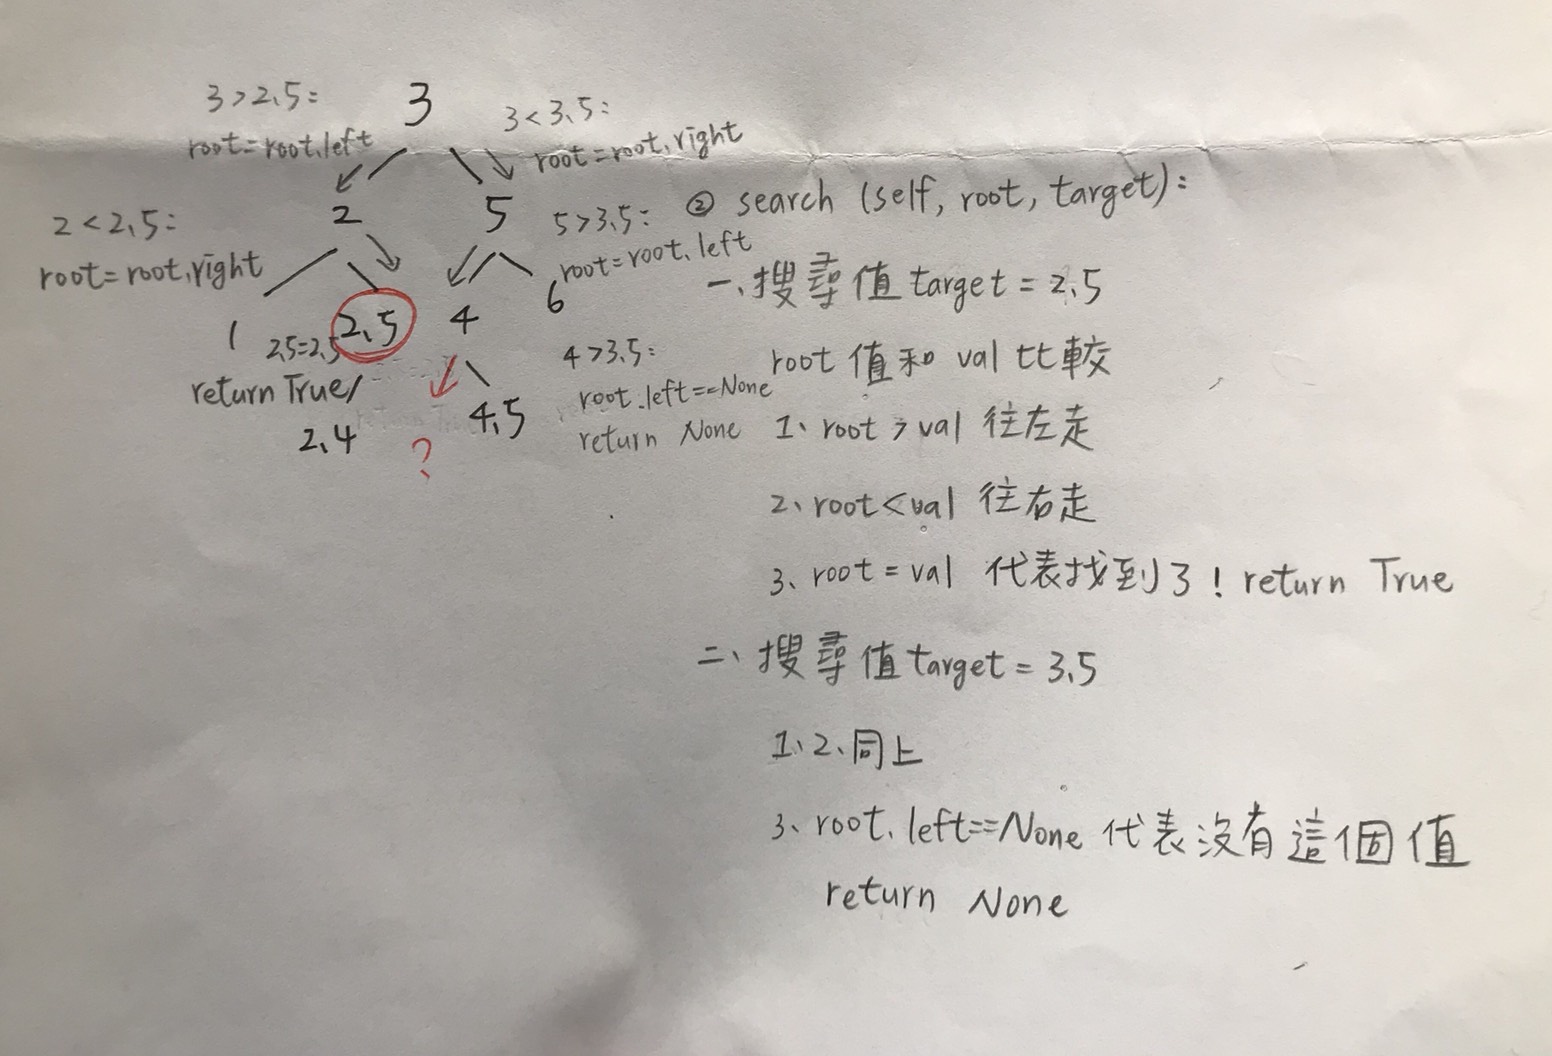 3
3 > 2、5:
root = root、left
3 < 3、5:
root = root、right
2
5
2 < 2、5:
root = root、right
5 > 3、5:
root = root、left
1
2、5
4
6
2、5=2、5
return True/
2、4
4、5
?
4 > 3、5:
root、left==None
return None
② search (self, root, target):
一、搜尋值 target = 2、5
root 值和 val 比較
1、root > val 往左走
2、root < val 往右走
3、root = val 代表找到了! return True
二、搜尋值 target = 3、5
1、2、同上
3、root、left==None 代表沒有這個值
return None